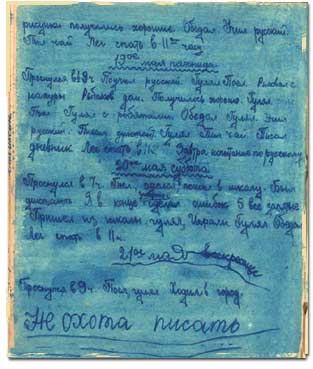 рисунки получились хорошие. Обедал. Учил русский.
Пил чай. Лег спать в 11 час
19ое мая пятница
Проснулся в 9 ч. Поучил русский. Гулял. Поел. Рисовал с
натуры. Рисовал дом. Получилось хорошо. Гулял.
Поел. Гулял с ребятами. Обедал. Гулял. Учил
русский. Писал Гулял. Пил чай. Писал
дневник. Лег спать в 11ч. Завтра испытание по русскому
20ое мая суббота.
Проснулся в 7 ч. Поел, оделся пошел в школу. Был
диктант. Я в конце сделал ошибок 5 все запятые.
Пришел из школы гулял, Играли. Гулял. Обедал
Лег спать в 11 ч.
21ое мая воскресенье
Проснулся в 9 ч. Поел, гулял. Ходил в город.
Не охота писать